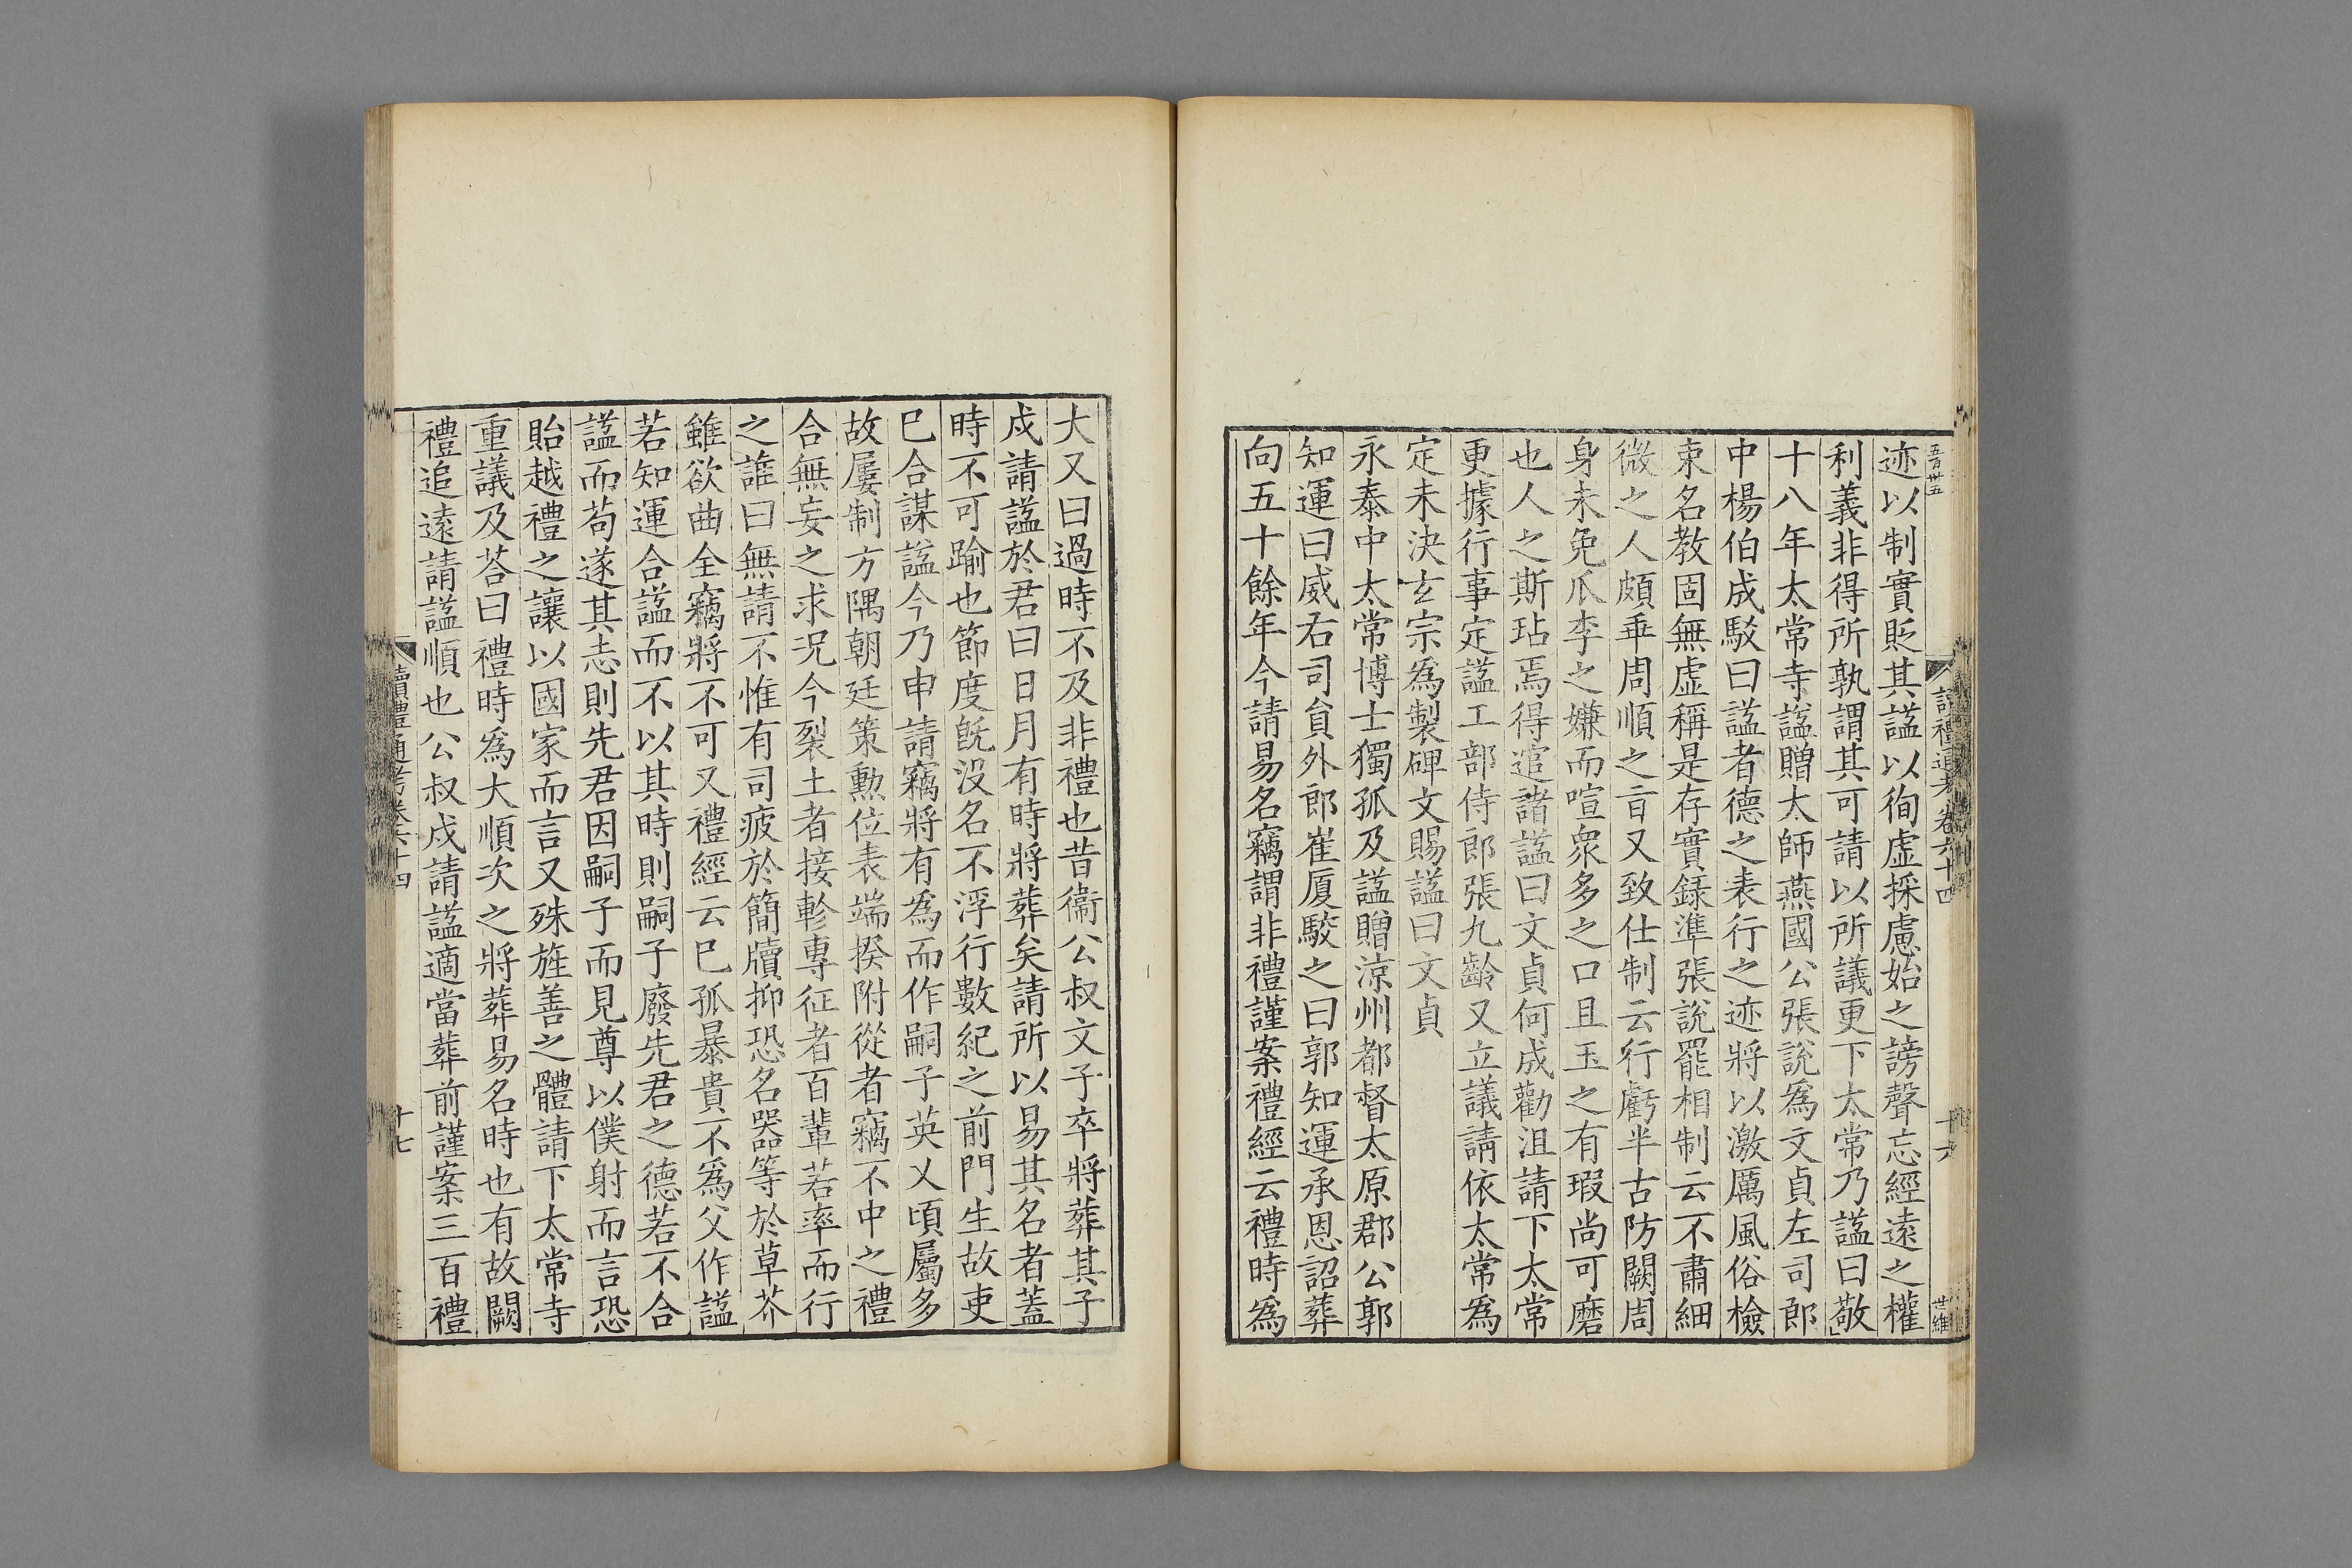 五百卅五
迹以制實貶其諡以徇虛採慮始之謗聲忘經遠之權
利義非得所孰謂其可請以所議更下太常乃諡曰敬
十八年太常寺諡贈太師燕國公張說爲文貞左司郎
中楊伯成駁曰諡者德之表行之迹將以激厲風俗檢
束名教固無虛稱是存實錄準張說罷相制云不肅細
微之人頗乖周順之旨又致仕制云行虧半古防闕周
身未免瓜李之嫌而喧衆多之口且玉之有瑕尚可磨
也人之斯玷焉得逭諸諡曰文貞何成勸沮請下太常
更據行事定諡工部侍郎張九齡又立議請依太常爲
定未決玄宗爲製碑文賜諡曰文貞
永泰中太常博士獨孤及諡贈涼州都督太原郡公郭
知運曰威右司貟外郎崔厦駮之曰郭知運承恩詔葬
向五十餘年今請易名竊謂非禮謹案禮經云禮時爲
讀禮通考卷六十四
十六
世維
大又曰過時不及非禮也昔衞公叔文子卒將葬其子
戍請諡於君曰日月有時將葬矣請所以易其名者蓋
時不可踰也節度旣沒名不浮行數紀之前門生故吏
巳合謀諡今乃申請竊將有爲而作嗣子英乂頃屬多
故屢制方隅朝廷策勲位表端揆附從者竊不中之禮
合無妄之求況今裂土者接軫專征者百輩若率而行
之誰曰無請不惟有司疲於簡牘抑恐名器等於草芥
雖欲曲全竊將不可又禮經云巳孤暴貴不爲父作諡
若知運合諡而不以其時則嗣子廢先君之德若不合
諡而苟遂其志則先君因嗣子而見尊以僕射而言恐
貽越禮之讓以國家而言又殊旌善之體請下太常寺
重議及荅曰禮時爲大順次之將葬易名時也有故闕
禮追遠請諡順也公叔戍請諡適當葬前謹案三百禮
讀禮通考卷六十四
十七